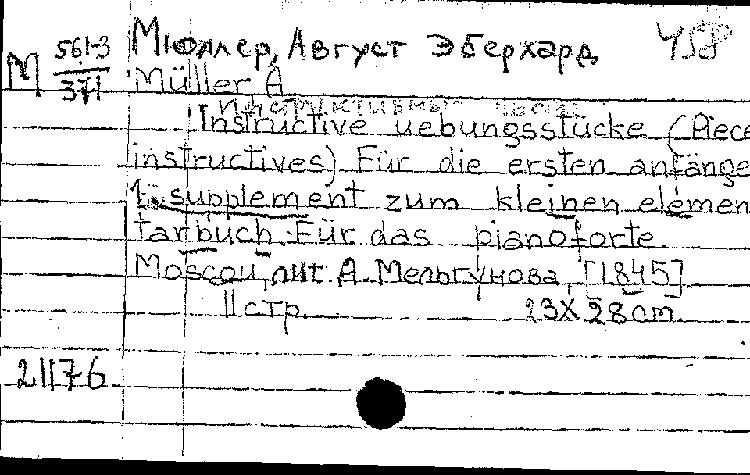 Мюллер, Август Эберхард
М 561-3
371
Müller A
Instructive uebungsstücke (Piece
instructives) Für die ersten anfänge
1. supplement zum kleinen elemen
tarbuch. Für das pianoforte.
Moscou, лит. А. Мельгунова, [1845]
11 стр. 23x28cm
21176